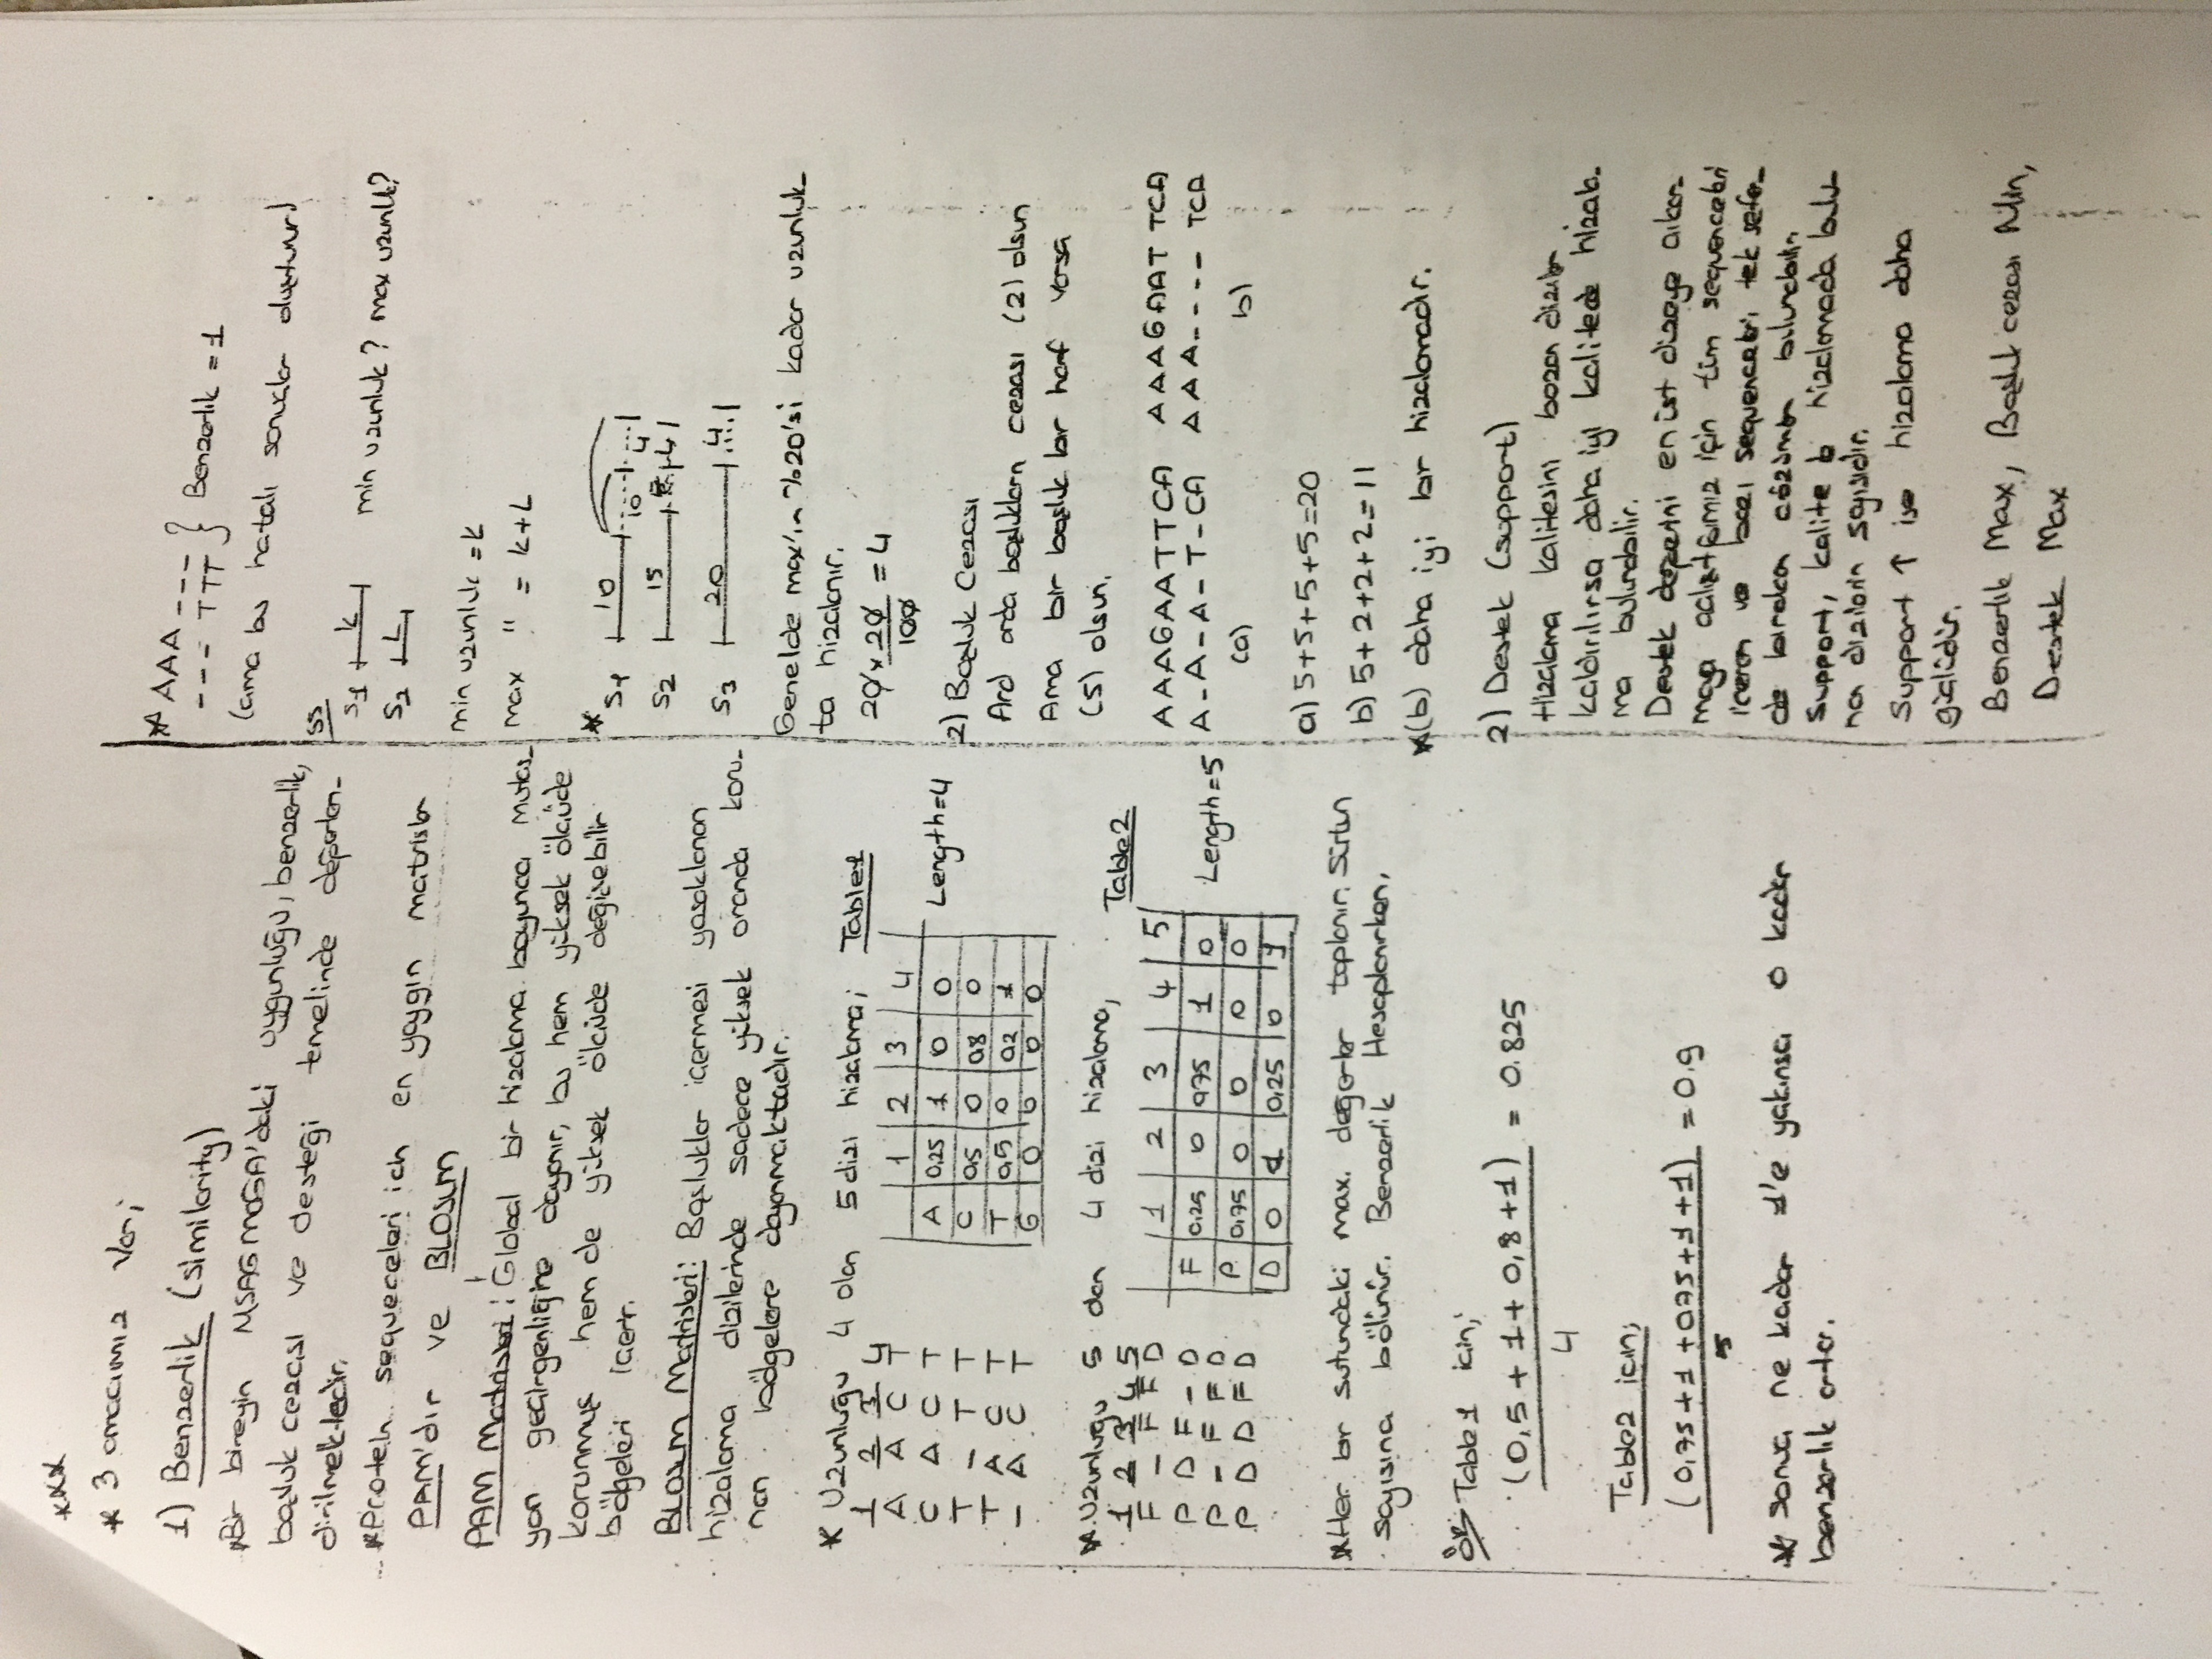 ***
* 3 amacımız var;
1) Benzerlik (similarity)
*Bir bireyin MSAGMOGA'daki uygunluğu, benzerlik,
boşluk cezası ve desteği temelinde değerlen-
dirilmektedir.
*Protein sequeceleri için en yaygın matrisler
PAM'dır ve BLOSUM
PAM Matrisleri: Global bir hizalama boyunca mutas-
yon geçirgenliğine dayanır, bu hem yüksek ölçüde
korunmuş hem de yüksek ölçüde değişebilir
bölgeleri içerir.
BLOSUM Matrisleri: Boşluklar içermesi yasaklanan
hizalama dizilerinde sadece yüksek oranda koru-
nan bölgelere dayanmaktadır.
* Uzunluğu 4 olan 5 dizi hizalama; Table1
1 2 3 4
A A C T
C A C T
T - T T
T A C T
- A C T
1 2 3 4
A 0,25 1 0 0
C 0,5 0 0,8 0
T 0,5 0 0,2 1
G 0 0 0 0
Length=4
*Uzunluğu 5 olan 4 dizi hizalama,
1 2 3 4 5
F - F F D
P D F - D
P - F F D
P D D F D
Table2
1 2 3 4 5
F 0,25 0 0,75 1 0
P 0,75 0 0 0 0
D 0 1 0,25 0 1
Length=5
*Her bir sutundaki max. değerler toplanır. Sütun
sayısına bölünür. Benzerlik Hesaplanırken,
ör: Table1 için;
(0,5 + 1 + 0,8 + 1) = 0.825
4
Table2 için;
(0,75+1+0,75+1+1) = 0.9
5
* Sonuç ne kadar 1'e yakınsa o kadar
benzerlik artar.
* AAA ---
--- TTT } Benzerlik = 1
(ama bu hatalı sonuçlar oluşturur)
SS
S1 k
S2 L
min uzunluk? max uzunluk?
min uzunluk = k
max " = k+L
*
S1 10 10 4
S2 15 5 4
S3 20 4
Genelde max'ın %20'si kadar uzunluk-
ta hizalanır.
20 x 20 = 4
100
2) Boşluk Cezası
Ard arda boşlukların cezası (2) olsun
Ama bir boşluk bir harf varsa
(5) olsun.
AAAGAATTCA AAAGAAT TCA
A-A-A-T-CA AAA---- TCA
(a) b)
a) 5+5+5+5=20
b) 5+2+2+2=11
*(b) daha iyi bir hizalamadır.
2) Destek (support)
Hizalama kalitesini bozan diziler
kaldırılırsa daha iyi kalitede hizala-
ma bulunabilir.
Destek değerini en üst düzeye çıkar-
maya çalıştığımız için tüm sequenceleri
içeren ve bazı sequenceleri tek sefer-
de bırakan çözümler bulunabilir.
Support, kalite hizalamada bulu-
nan dizilerin sayısıdır.
Support ↑ ise hizalama daha
güçlüdür.
Benzerlik Max, Boşluk cezası Min,
Destek Max